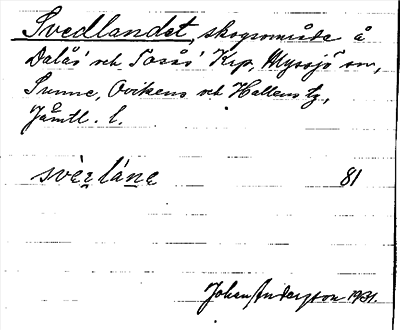 Svedlandet, skogsområde å
Dalås' och Tosås' Krp, Myssjö sn,
Sunne, Ovikens och Hallens tg,
Jämtl. l.
svèṛ láṇe 81
Johan Anderson 1931.